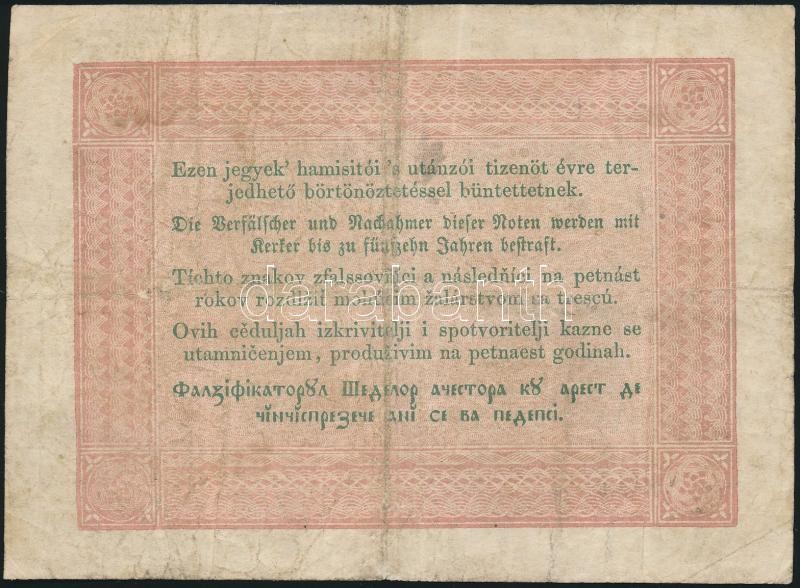 Ezen jegyek' hamisitói 's utánzói tizenöt évre ter-
jedhető börtönöztetéssel büntettetnek.
Die Verfälscher und Nachahmer dieser Noten werden mit
Kerker bis zu fünfzehn Jahren bestraft.
Tíchto znakov zfalssovňíci a následňíci na petnást
rokov rozdížiť mohúcim žalárstvom sa trescú.
Ovih cěduljah izkrivitelji i spotvoritelji kazne se
utamničenjem, produživim na petnaest godinah.
Фалꙁіфікаторꙋл Шеделор ачестора кꙋ арест де
чінчіспрезече ані се ва педепсі.
darabanth